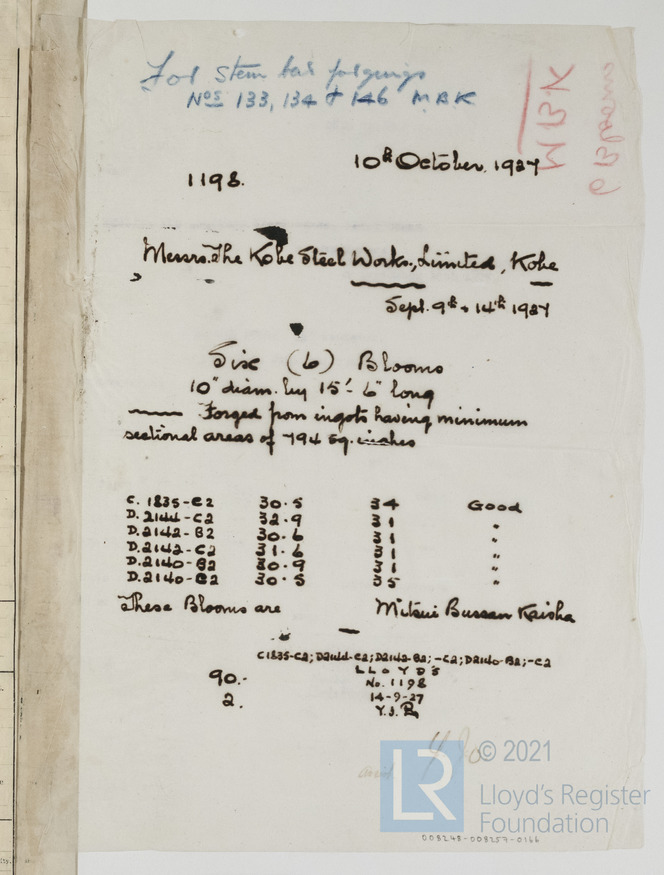 For Stem bar forgings
Nos 133, 134 & 146 MBK
MBK
6 Blooms
10th October, 1927
1198.
Messrs. The Kobe Steel Works, Limited, Kobe
Sept. 9th & 14th 1927
Six (6) Blooms
10" diam. by 15'-6" long
Forged from ingots having minimum
sectional areas of 794 sq. inches
C. 1835-C2 30.5 34 Good
D. 2144-C2 32.9 31 "
D. 2142-B2 30.6 31 "
D. 2142-C2 31.6 31 "
D. 2140-B2 30.9 31 "
D. 2140-C2 30.5 35 "
These Blooms are Mitsui Bussan Kaisha
C1835-C2; D2144-C2; D2142-B2; -C2; D2140-B2; -C2
LLOYD'S
90.- No. 1198
14-9-27
2. Y.J.
© 2021
LR
Lloyd's Register
Foundation
008248-008257-0166